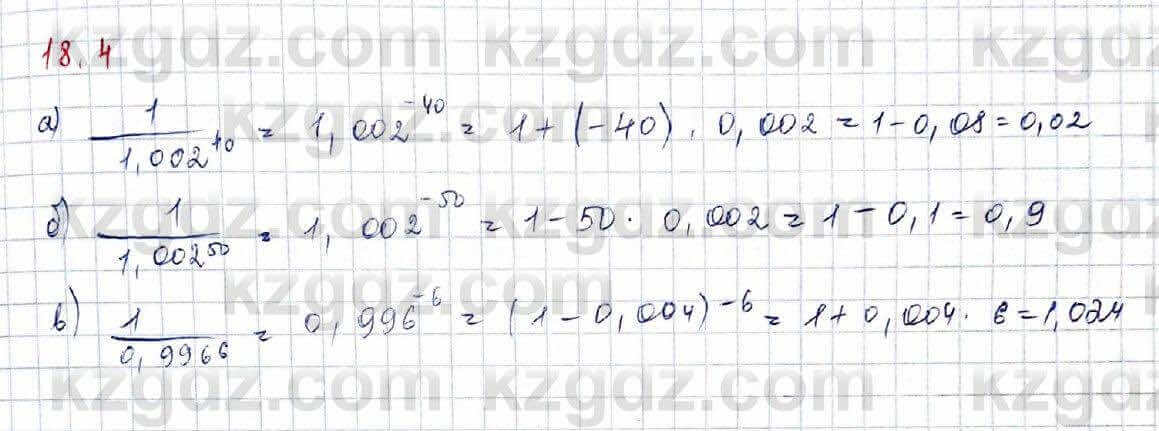 kzgdz.com kzgdz.com kzgdz.com
18.4
а) 1/1,002^40 = 1,002^-40 = 1 + (-40) . 0,002 = 1 - 0,08 = 0,02
kzgdz.com kzgdz.com
б) 1/1,002^50 = 1,002^-50 = 1 - 50 . 0,002 = 1 - 0,1 = 0,9
kzgdz.com kzgdz.com kzgdz.com
в) 1/0,996^6 = 0,996^-6 = (1 - 0,004)^-6 = 1 + 0,004 . 6 = 1,024
kzgdz.com kzgdz.com
kzgdz.com kzgdz.com kzgdz.com